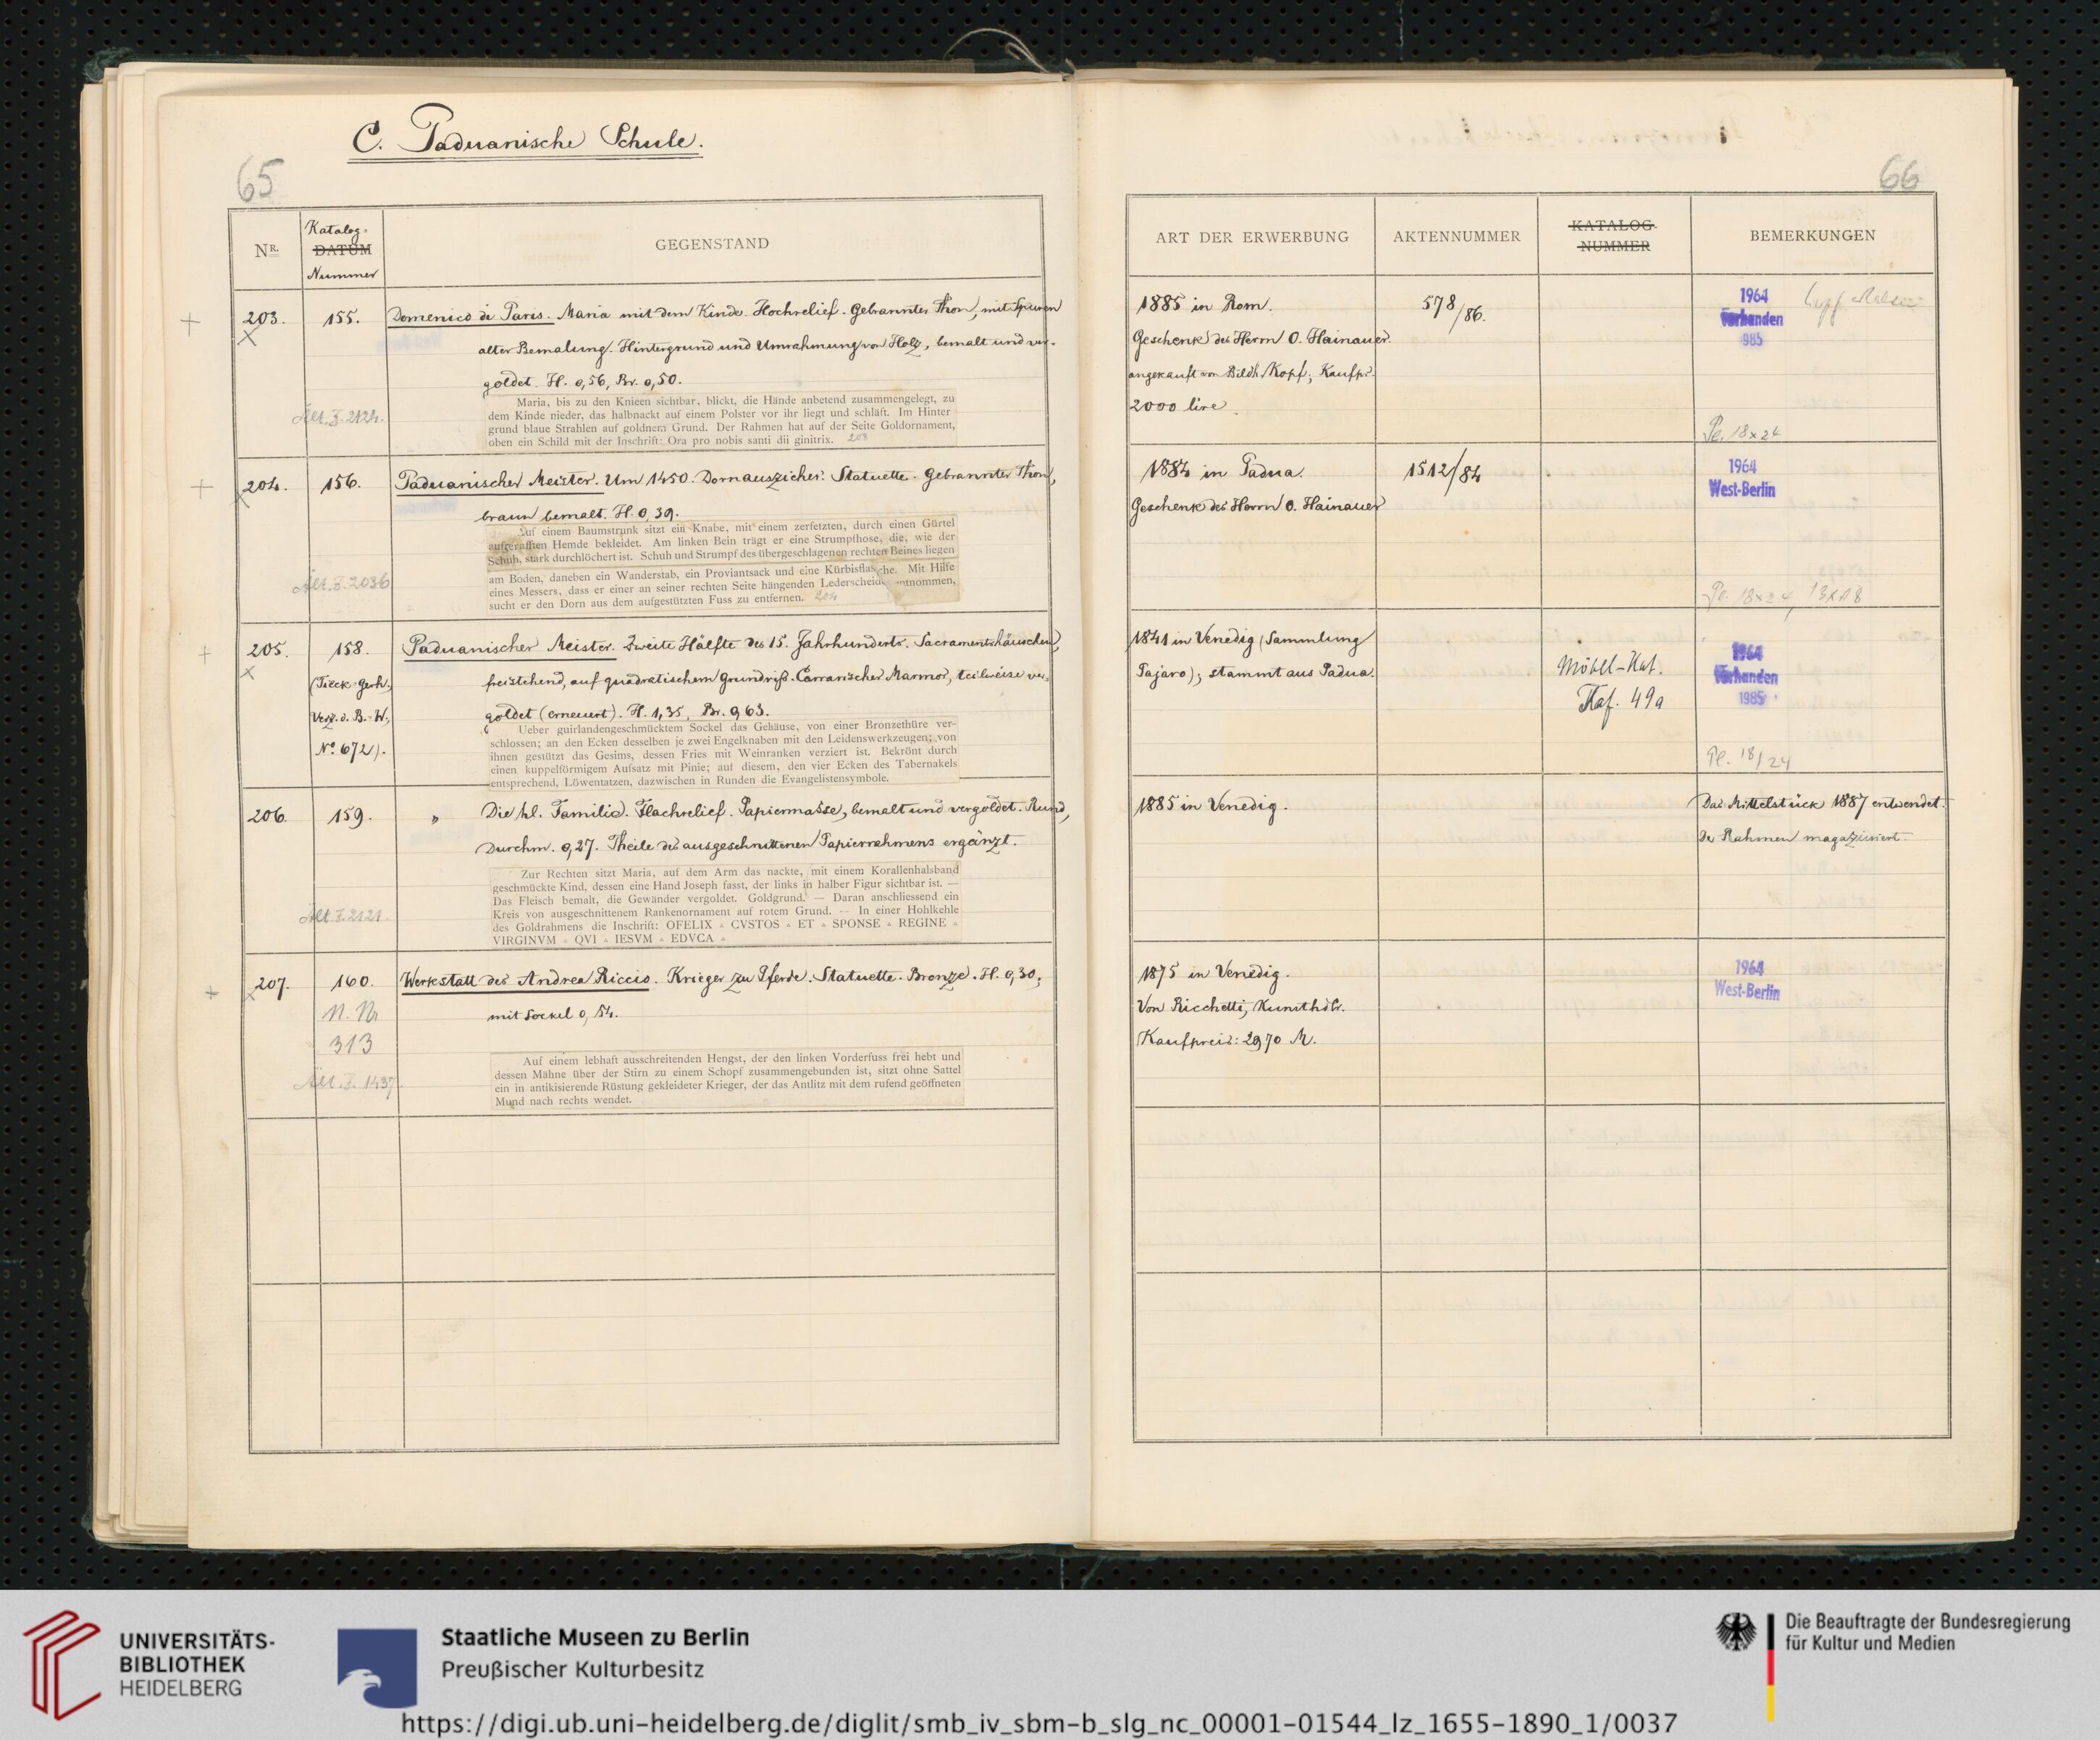 C. Paduanische Schule.
65
66
Nr.
Katalog-
DATUM
Nummer
GEGENSTAND
ART DER ERWERBUNG
AKTENNUMMER
KATALOG-
NUMMER
BEMERKUNGEN
203.
155.
Domenico di Paris. Maria mit dem Kinde. Hochrelief. Gebrannter Thon, mit Spuren
alter Bemalung. Hintergrund und Umrahmung von Holz, bemalt und ver-
goldet. H. 0,56, Br. 0,50.
Ält. I. 2124.
Maria, bis zu den Knieen sichtbar, blickt, die Hände anbetend zusammengelegt, zu
dem Kinde nieder, das halbnackt auf einem Polster vor ihr liegt und schläft. Im Hinter
grund blaue Strahlen auf goldnem Grund. Der Rahmen hat auf der Seite Goldornament,
oben ein Schild mit der Inschrift: Ora pro nobis santi dii ginitrix. 203
1885 in Rom.
Geschenk des Herrn O. Hainauer.
angekauft von Bildh. Kopf; Kaufpr.
2000 lire.
578/86.
1964
Vorhanden
1985
Pl. 18x24
204.
156.
Paduanischer Meister. Um 1450. Dornauszieher. Statuette. Gebrannter Thon,
braun bemalt. H. 0,39.
Ält. I. 2036
Auf einem Baumstrunk sitzt ein Knabe, mit einem zerfetzten, durch einen Gürtel
aufgerafften Hemde bekleidet. Am linken Bein trägt er eine Strumpfhose, die, wie der
Schuh, stark durchlöchert ist. Schuh und Strumpf des übergeschlagenen rechten Beines liegen
am Boden, daneben ein Wanderstab, ein Proviantsack und eine Kürbisflasche. Mit Hilfe
eines Messers, dass er einer an seiner rechten Seite hängenden Lederscheide entnommen,
sucht er den Dorn aus dem aufgestützten Fuss zu entfernen. 204
1884 in Padua.
Geschenk des Herrn O. Hainauer
1512/84
1964
West-Berlin
Pl. 18x24, 13x18
205.
158.
(Tieck-Gerh.
Verz. d. B.-W.
No. 672).
Paduanischer Meister. Zweite Hälfte des 15. Jahrhunderts. Sacramentshäuschen,
freistehend, auf quadratischem Grundriß. Carrarischer Marmor, teilweise ver-
goldet (erneuert). H. 1,35, Br. 0,63.
Ueber guirlandengeschmücktem Sockel das Gehäuse, von einer Bronzethüre ver-
schlossen; an den Ecken desselben je zwei Engelknaben mit den Leidenswerkzeugen; von
ihnen gestützt das Gesims, dessen Fries mit Weinranken verziert ist. Bekrönt durch
einen kuppelförmigem Aufsatz mit Pinie; auf diesem, den vier Ecken des Tabernakels
entsprechend, Löwentatzen, dazwischen in Runden die Evangelistensymbole.
1841 in Venedig (Sammlung
Pajaro); stammt aus Padua.
Möbel-Kat.
Taf. 49a
1964
Vorhanden
1985
Pl. 18/24
206.
159.
„ Die hl. Familie. Flachrelief. Papiermasse, bemalt und vergoldet. Rund,
Durchm. 0,27. Theile des ausgeschnittenen Papierrahmens ergänzt.
Ält. I. 2121.
Zur Rechten sitzt Maria, auf dem Arm das nackte, mit einem Korallenhalsband
geschmückte Kind, dessen eine Hand Joseph fasst, der links in halber Figur sichtbar ist. —
Das Fleisch bemalt, die Gewänder vergoldet. Goldgrund. — Daran anschliessend ein
Kreis von ausgeschnittenem Rankenornament auf rotem Grund. — In einer Hohlkehle
des Goldrahmens die Inschrift: OFELIX ▵ CVSTOS ▵ ET ▵ SPONSE ▵ REGINE ▵
VIRGINVM ▵ QVI ▵ IESVM ▵ EDVCA ▵
1885 in Venedig.
Das Mittelstück 1887 entwendet.
Der Rahmen magaziniert.
207.
160.
N. Nr
313
Ält. I. 1437
Werkstatt des Andrea Riccio. Krieger zu Pferde. Statuette. Bronze. H. 0,30,
mit Sockel 0,54.
Auf einem lebhaft ausschreitenden Hengst, der den linken Vorderfuss frei hebt und
dessen Mähne über der Stirn zu einem Schopf zusammengebunden ist, sitzt ohne Sattel
ein in antikisierende Rüstung gekleideter Krieger, der das Antlitz mit dem rufend geöffneten
Mund nach rechts wendet.
1875 in Venedig.
Von Ricchetti, Kunsthdlr.
Kaufpreis: 2970 M.
1964
West-Berlin
UNIVERSITÄTS-
BIBLIOTHEK
HEIDELBERG
Staatliche Museen zu Berlin
Preußischer Kulturbesitz
Die Beauftragte der Bundesregierung
für Kultur und Medien
https://digi.ub.uni-heidelberg.de/diglit/smb_iv_sbm-b_slg_nc_00001-01544_lz_1655-1890_1/0037